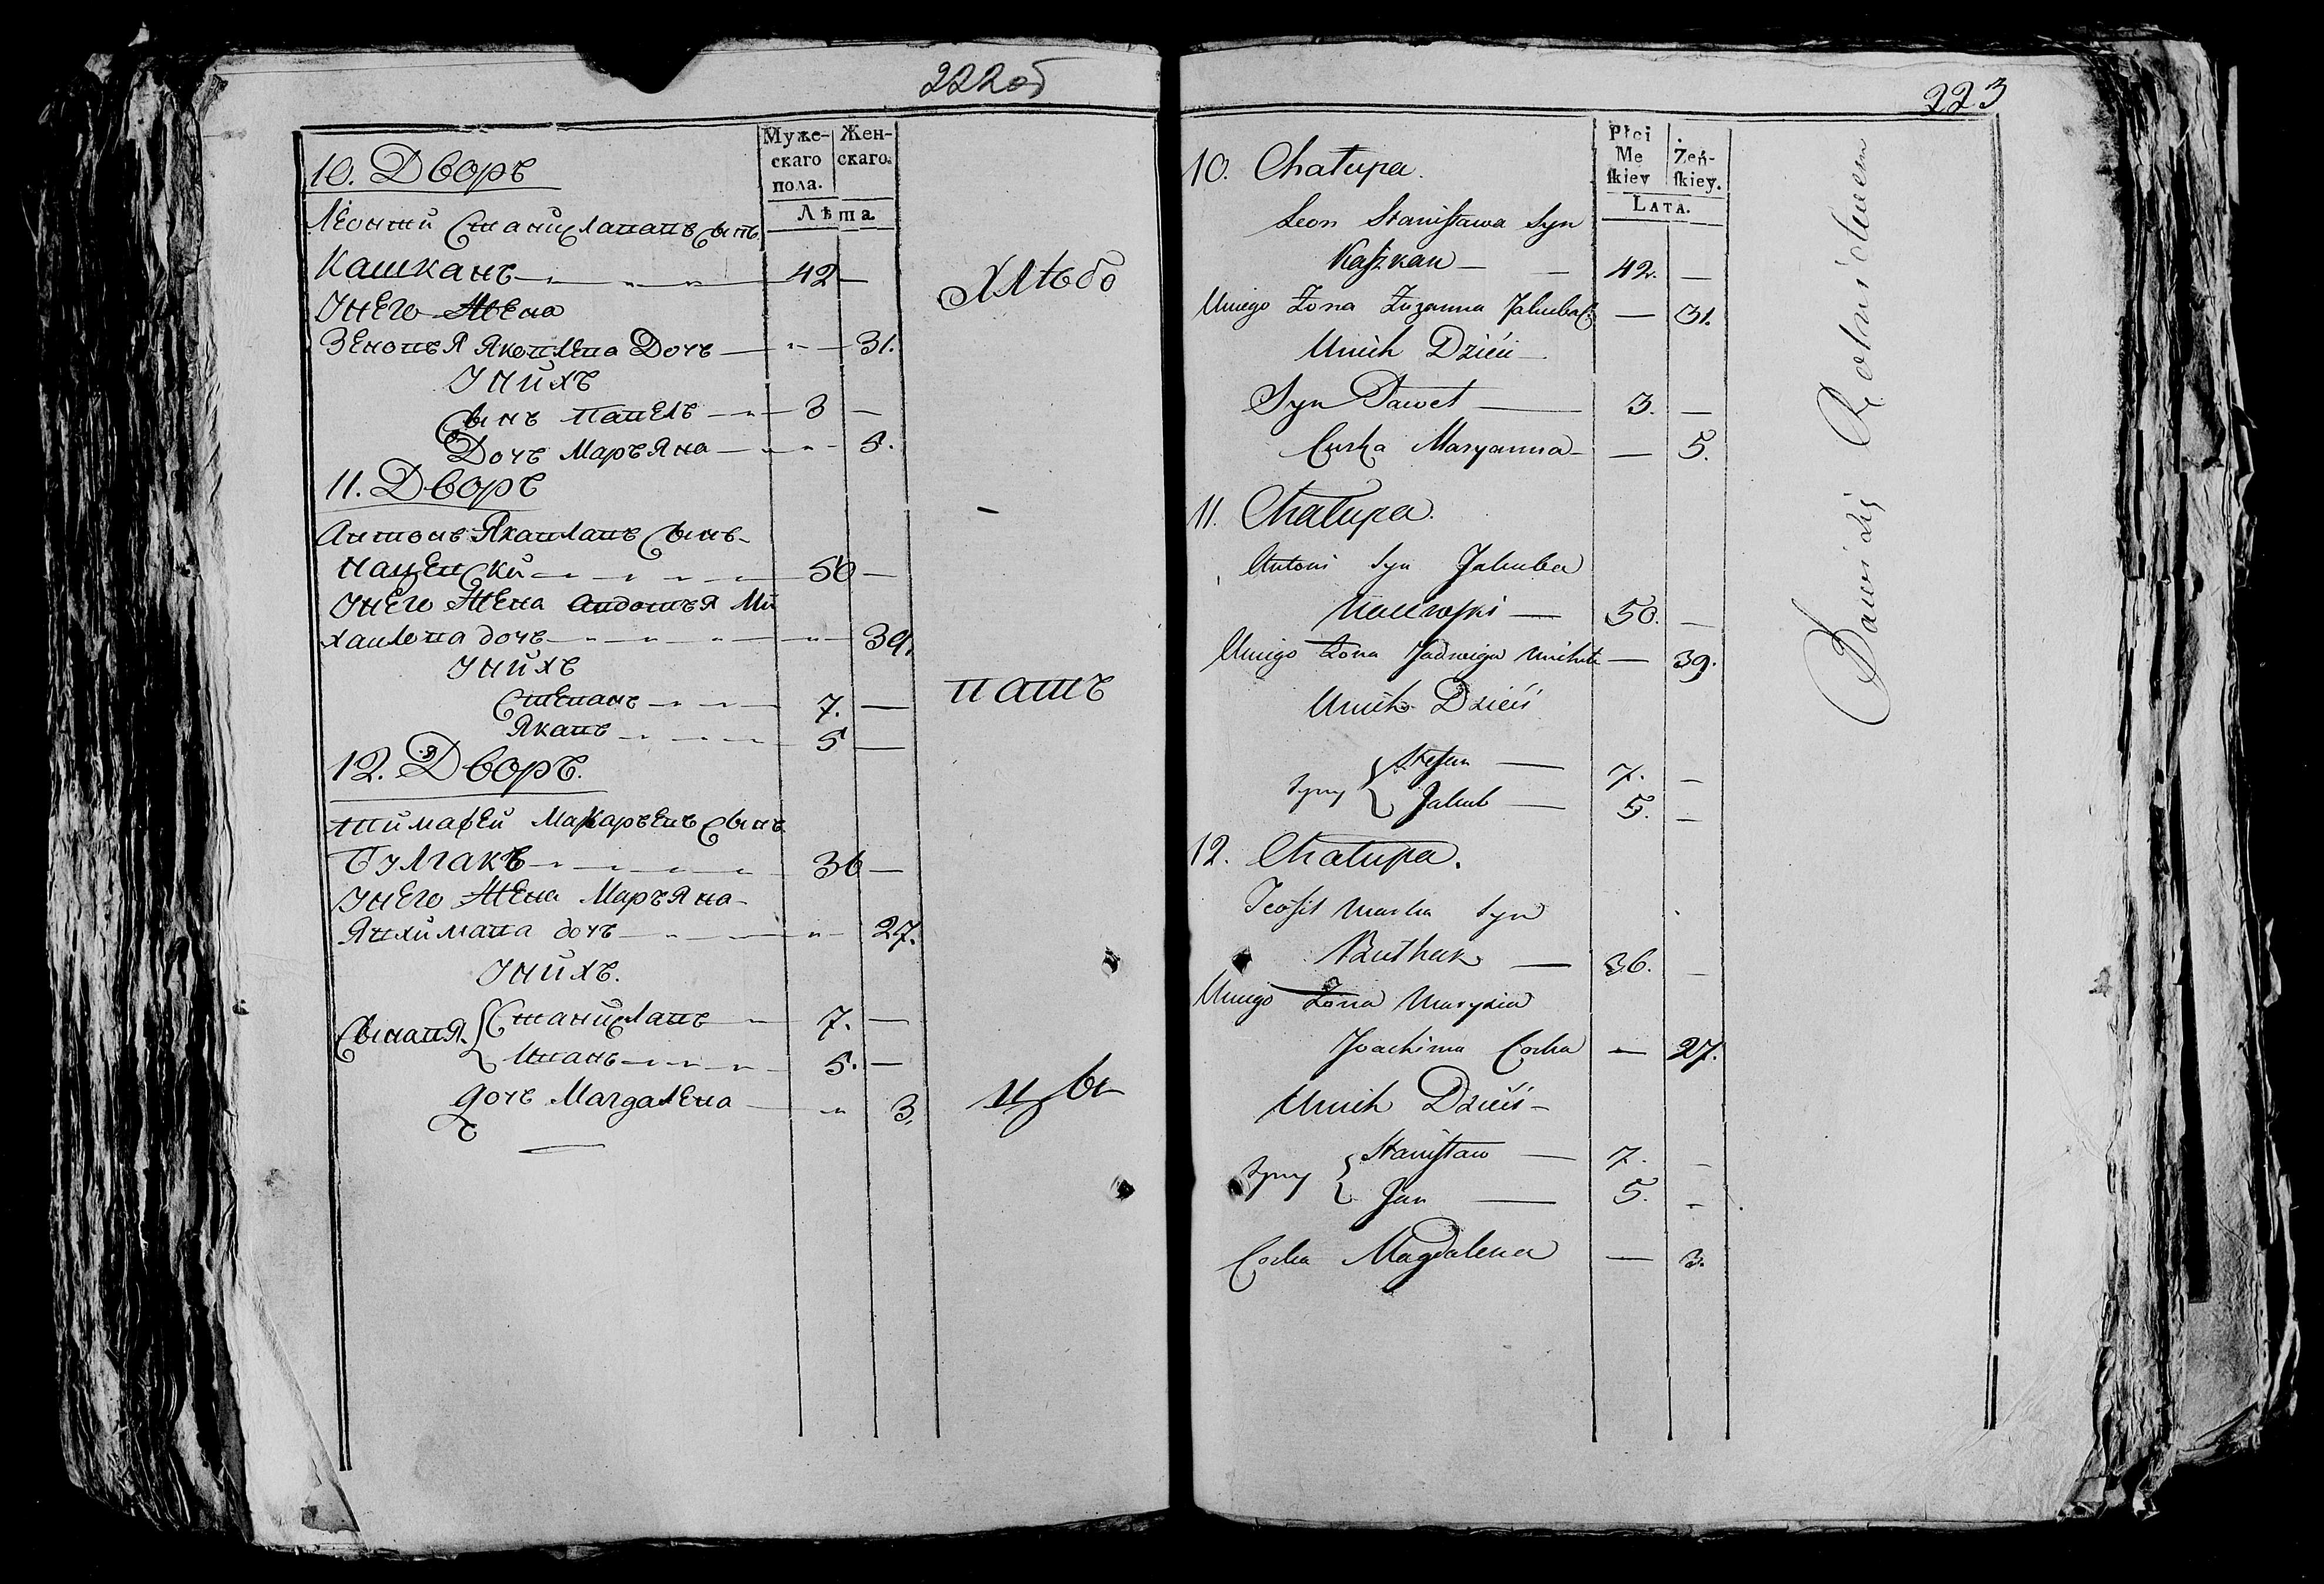 222 об
Муже-
скаго
пола.
Жен-
скаго.
Лѣта.
10. Дворъ
Леонтй Станиславапъ Сынъ
Кашканъ 42 —
Унего Жена
Зеновья Яковлева Дочь — 31.
Унйхъ
Сынъ Павелъ 3 —
Дочь Маръяна — 5.
11. Дворъ
Антонъ Якавлавъ Сынъ
50 —
Унего Жена Авдотья Ми
хайлова дочь — 39.
Унйхъ
Степанъ 7. —
Якавъ 5 —
12. Дворъ.
Тймафей Макаръевъ Сынъ
Булгакъ 36 —
Унего Жена Маръяна
дочь — 27.
Унйхъ.
Сынавя Станйславъ 7. —
Иванъ 5. —
дочь Магдалена — 3.
хлѣбо
пашъ
цвы
223
Płci
Mę
skiey
Żeń-
skiey.
LATA.
10. Chałupa.
Leon Stanisława Syn
Kaszkan — 42. —
Uniego Żona Zuzanna Jakuba C. — 31.
Unich Dzieci
Syn Paweł — 3. —
Curka Maryanna — 5.
11. Chałupa.
Antoni Syn Jakuba
50. —
Uniego Żona Jadwiga Michała — 39.
Unich Dzieci
Syny { Stefan — 7. —
Jakub — 5. —
12. Chałupa.
Teofil Marka Syn
Bułhak — 36. —
Uniego Żona Marysia
Joachima Corka — 27.
Unich Dzieci —
Syny { Stanisław — 7. —
Jan — 5. —
Corka Magdalena — 3.